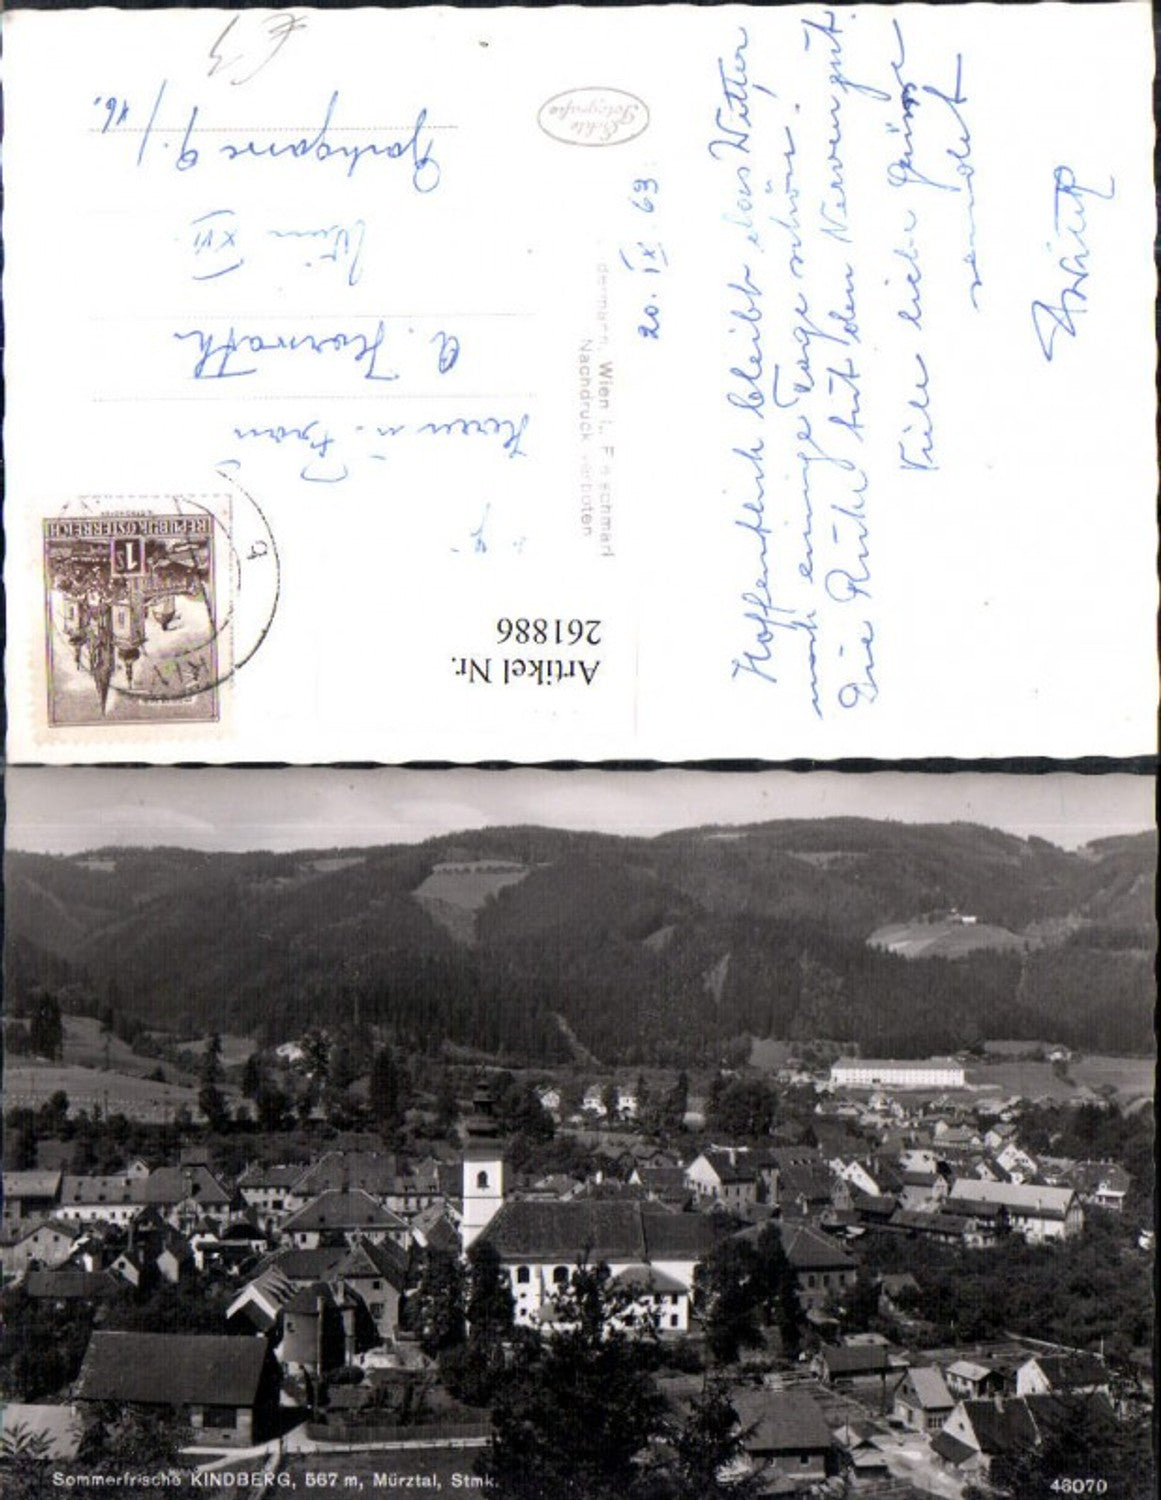 20. IX. 63
Hoffentlich bleibt das Wetter
noch einige Tage schön.
Die Ruhe tut den Nerven gut.
Viele liebe Grüsse
sendet
Echte
Fotografie
Wien I.,
Nachdruck verboten
Herrn u. Frau
A. Horvath
Wien XVI.
9./16.
REPUBLIK ÖSTERREICH
1S
Artikel Nr.
261886
Sommerfrische KINDBERG, 567 m, Mürztal, Stmk.
46070